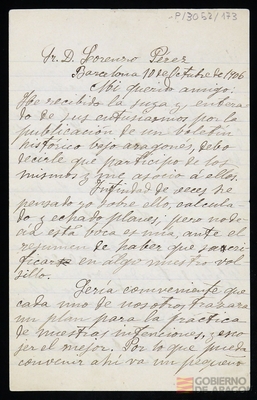 P/3052/173
Sr. D. Lorenzo Pérez
Barcelona 10 de Octubre de 1906
Mi querido amigo:
He recibido la suya y entera-
do de sus entusiasmos por la
publicación de un boletín
histórico bajo aragones, debo
decirle que participo de los
mismos y me asocio á ellos.
Infinidad de veces he
pensado yo sobre ello, calcula-
do y echado planes; pero no de-
cía esta boca es mia, ante el
resumen de haber que sacri-
ficar en algo nuestro bol-
sillo.
Sería conveniente que
cada uno de nosotros trazara
un plan para la práctica
de nuestras intenciones, y esco-
jer el mejor. Por lo que pueda
convenir ahi va un pequeño
GOBIERNO
DE ARAGON